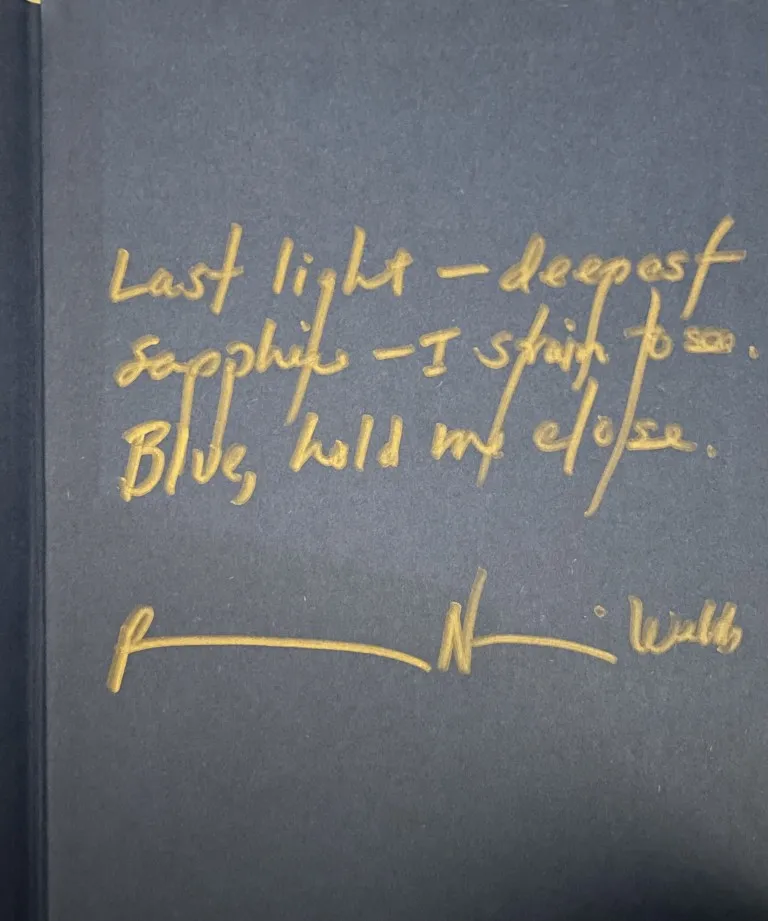 Last light – deepest
sapphire – I strain to see.
Blue, hold me close.